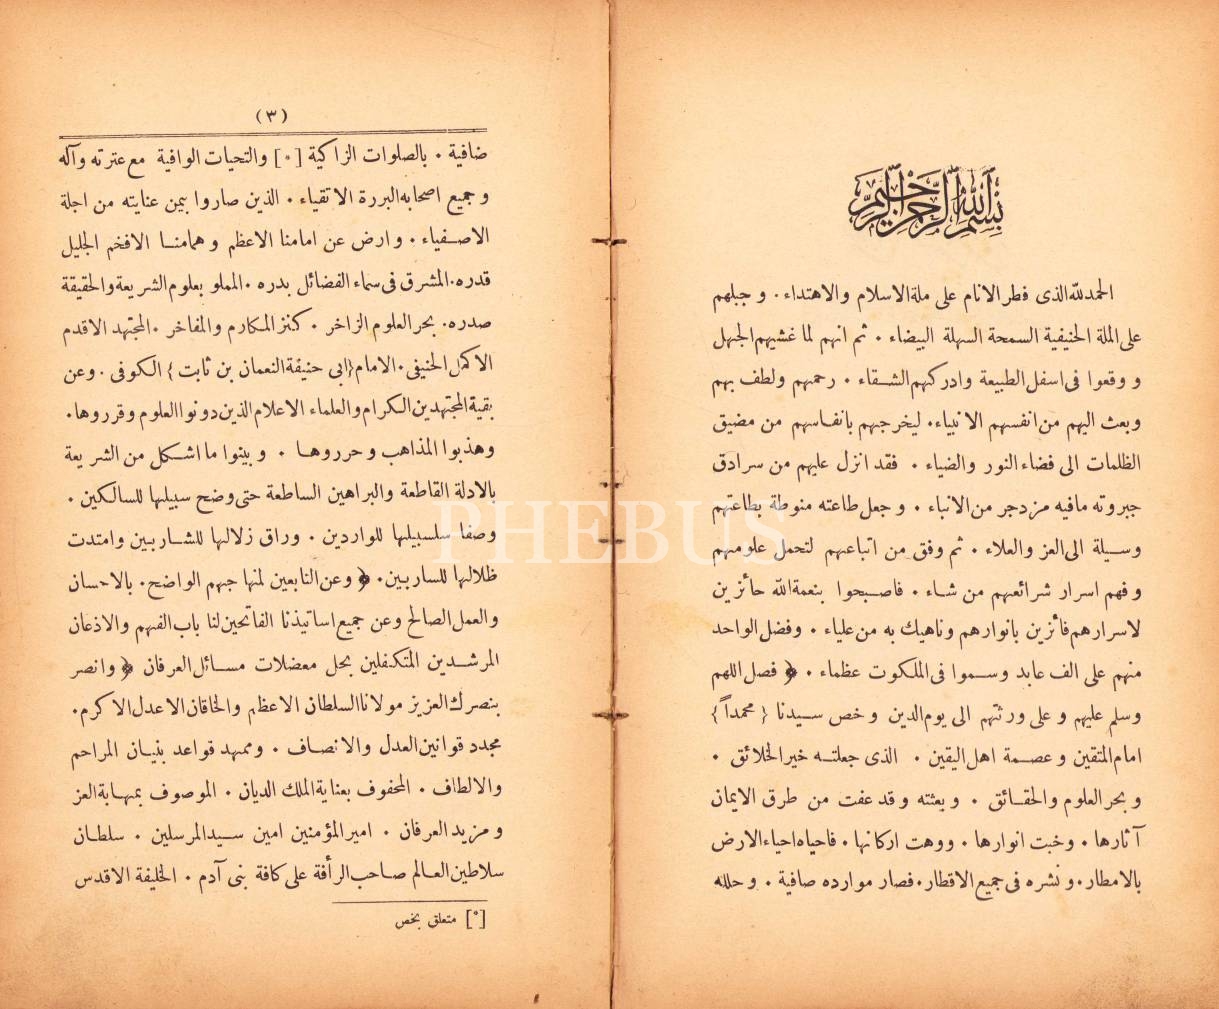 بسم الله الرحمن الرحيم
الحمدلله الذى فطر الانام على ملة الاسلام والاهتداء . و جبلهم
على الملة الحنيفية السمحة السهلة البيضاء . ثم انهم لما غشيهم الجهل
و وقعوا فى اسفل الطبيعة وادركهم الشقاء . رحمهم ولطف بهم
وبعث اليهم من انفسهم الانبياء . ليخرجهم بانفاسهم من مضيق
الظلمات الى فضاء النور والضياء . فقد انزل عليهم من سرادق
جبروته مافيه مزدجر من الانباء . و جعل طاعته منوطة بطاعتهم
وسيلة الى العز والعلاء . ثم وفق من اتباعهم لتحمل علومهم
و فهم اسرار شرائعهم من شاء . فاصبحوا بنعمة الله حائزين
لاسرارهم فائزين بانوارهم وناهيك به من علياء . وفضل الواحد
منهم على الف عابد وسموا فى الملكوت عظماء . ﴿ فصل اللهم
وسلم عليهم و على ورثتهم الى يوم الدين و خص سيدنا { محمداً }
امام المتقين و عصمة اهل اليقين . الذى جعلته خير الخلائق .
و بحر العلوم والحقائق . و بعثته و قد عفت من طرق الايمان
آثارها . وخبت انوارها . ووهت اركانها . فاحياه احياء الارض
بالامطار . و نشره فى جميع الاقطار . فصار موارده صافية . و حلله
(٣)
ضافية . بالصلوات الزاكية [*] والتحيات الوافية مع عترته وآله
و جميع اصحابه البررة الاتقياء . الذين صاروا بيمن عنايته من اجلة
الاصفياء . وارض عن امامنا الاعظم و همامنا الافخم الجليل
قدره . المشرق فى سماء الفضائل بدره . المملو بعلوم الشريعة والحقيقة
صدره . بحر العلوم الزاخر . كنز المكارم والمفاخر . المجتهد الاقدم
الاكمل الحنيفى . الامام { ابى حنيفة النعمان بن ثابت } الكوفى . وعن
بقية المجتهدين الكرام والعلماء الاعلام الذين دونوا العلوم وقرروها .
وهذبوا المذاهب و حرروها . و بينوا ما اشكل من الشريعة
بالادلة القاطعة والبراهين الساطعة حتى وضح سبيلها للسالكين .
وصفا سلسبيلها للواردين . وراق زلالها للشاربين وامتدت
ظلالها للساربين . ﴿ وعن التابعين لمنهاجهم الواضح . بالاحسان
والعمل الصالح وعن جميع اساتيذنا الفاتحين لنا باب الفهم والاذعان
المرشدين المتكفلين بحل معضلات مسائل العرفان ﴿ وانصر
بنصرك العزيز مولانا السلطان الاعظم والخاقان الاعدل الاكرم .
مجدد قوانين العدل والانصاف . وممهد قواعد بنيان المراحم
والالطاف . المحفوف بعناية الملك الديان . الموصوف بمهابة العز
و مزيد العرفان . امير المؤمنين امين سيد المرسلين . سلطان
سلاطين العالم صاحب الرأفة على كافة بنى آدم . الخليفة الاقدس
[*] متعلق بخص
PHEBUS